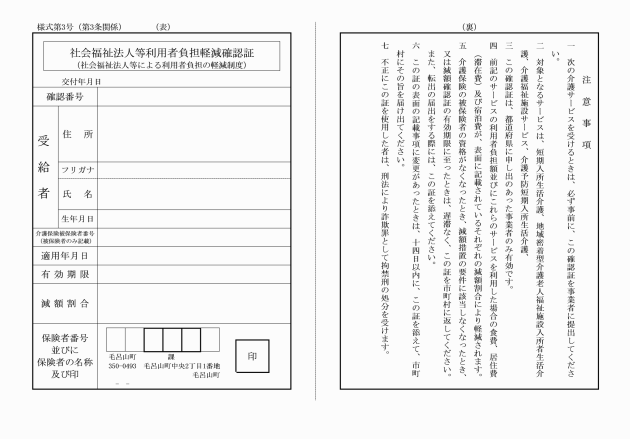 様式第3号（第3条関係）　（表）
社会福祉法人等利用者負担軽減確認証
（社会福祉法人等による利用者負担の軽減制度）
交付年月日
確認番号
受給者
住　所
フリガナ
氏　名
生年月日
介護保険被保険者番号
（被保険者のみ記載）
適用年月日
有効期限
減額割合
保険者番号
並びに
保険者の名称
及び印
毛呂山町　課
350-0493　毛呂山町中央2丁目1番地
毛呂山町
印
（裏）
注意事項
一　次の介護サービスを受けるときは、必ず事前に、この確認証を事業者に提出してくださ
い。
二　対象となるサービスは、短期入所生活介護、地域密着型介護老人福祉施設入所者生活介
護、介護福祉施設サービス、介護予防短期入所生活介護、
三　この確認証は、都道府県に申し出のあった事業者のみ有効です。
四　前記のサービスの利用者負担額並びにこれらのサービスを利用した場合の食費、居住費
（滞在費）及び宿泊費が、表面に記載されているそれぞれの減額割合により軽減されます。
五　介護保険の被保険者の資格がなくなったとき、減額措置の要件に該当しなくなったとき、
又は減額確認証の有効期限に至ったときは、遅滞なく、この証を市町村に返してください。
また、転出の届出をする際には、この証を添えてください。
六　この証の表面の記載事項に変更があったときは、十四日以内に、この証を添えて、市町
村にその旨を届け出てください。
七　不正にこの証を使用した者は、刑法により詐欺罪として拘禁刑の処分を受けます。